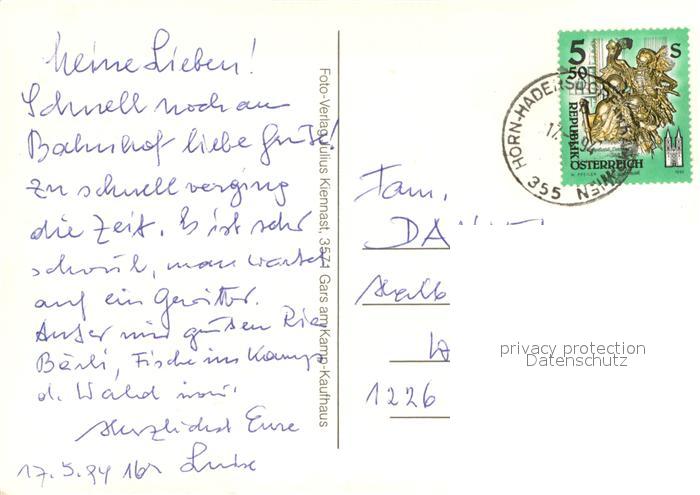 Meine Lieben!
Schnell noch am
Bahnhof liebe Grüße!
Zu schnell verging
die Zeit. Es ist sehr
schwül, man wartet
auf ein Gewitter.
Außer mir grüßen
Bärli, Fische im Kamp
d. Wald
Herzlichst Eure
17.5.94 16h Luise
Foto-Verlag Julius Kiennast, 3571 Gars am Kamp-Kaufhaus
Fam.
DA
1226
privacy protection
Datenschutz
5 S
50
REPUBLIK
ÖSTERREICH
HORN-HADERSDORF
355 WIEN